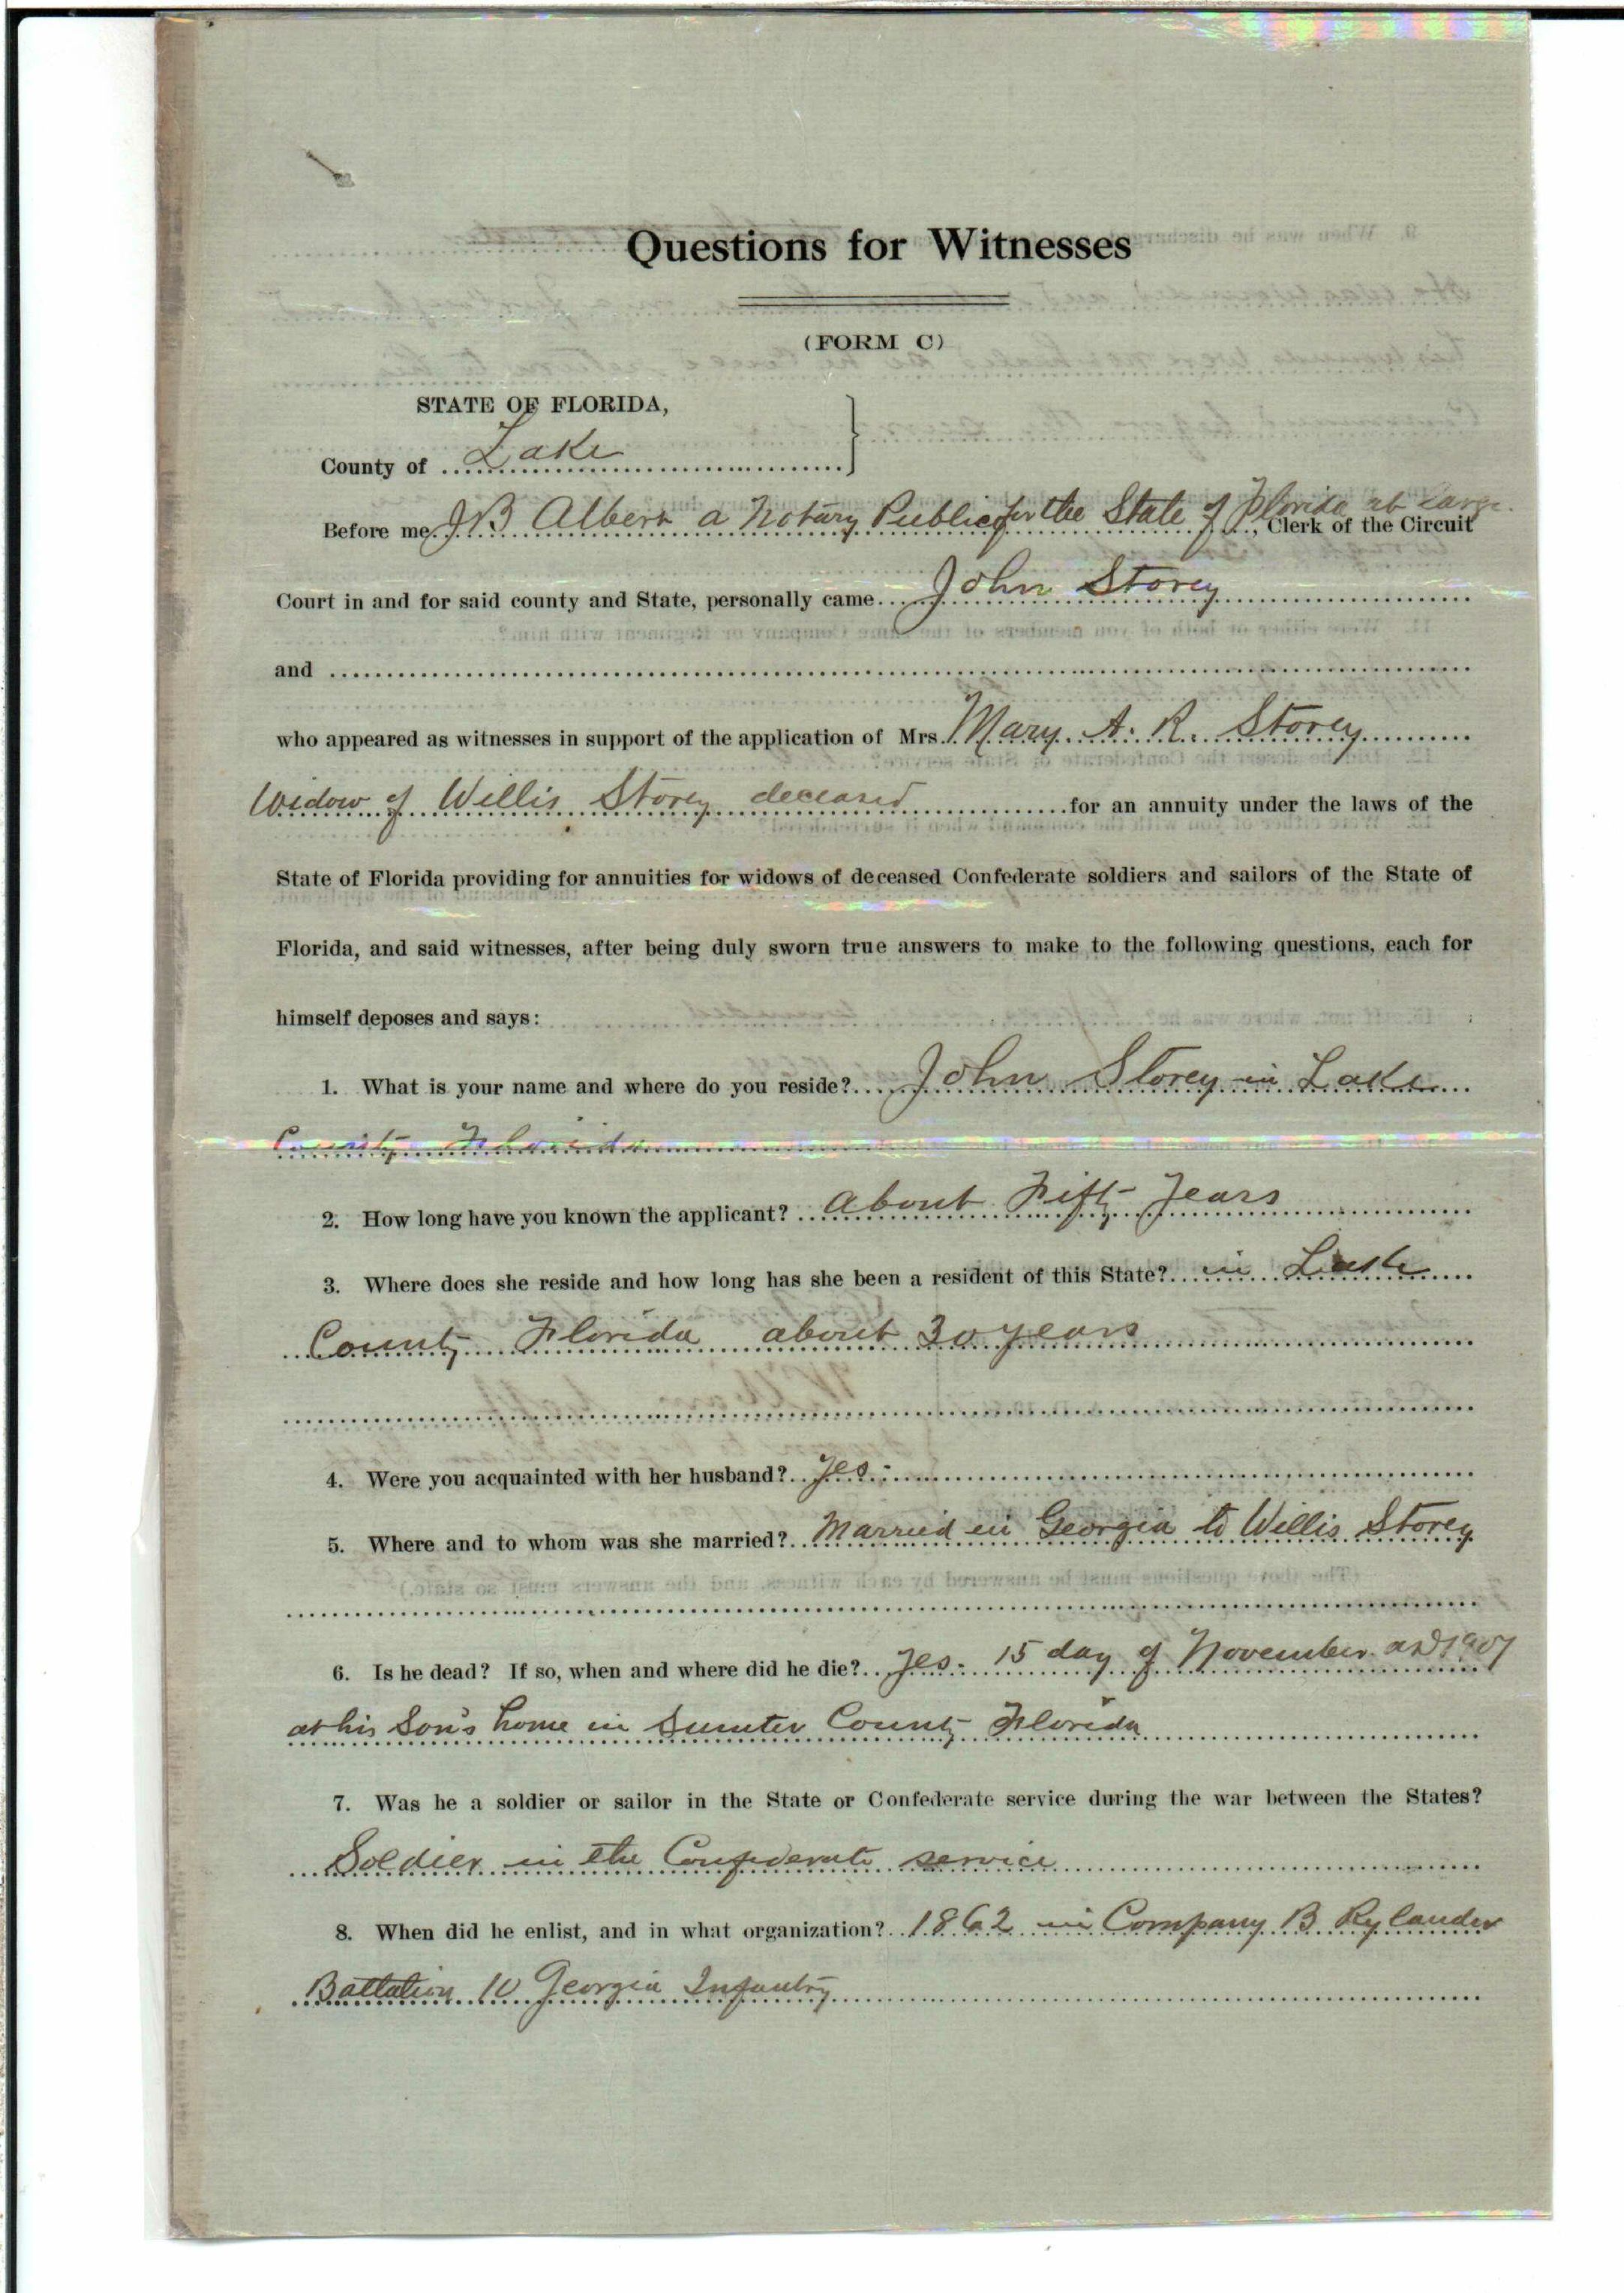 Questions for Witnesses
(FORM C)
STATE OF FLORIDA,
County of Lake
Before me J B Albert a Notary Public for the State of Florida at large, Clerk of the Circuit
Court in and for said county and State, personally came John Storey
and
who appeared as witnesses in support of the application of Mrs. Mary A. R. Storey
Widow of Willis Storey deceased for an annuity under the laws of the
State of Florida providing for annuities for widows of deceased Confederate soldiers and sailors of the State of
Florida, and said witnesses, after being duly sworn true answers to make to the following questions, each for
himself deposes and says:
1. What is your name and where do you reside? John Storey in Lake
County Florida
2. How long have you known the applicant? About Fifty Years
3. Where does she reside and how long has she been a resident of this State? in Lake
County Florida about 30 years
4. Were you acquainted with her husband? Yes.
5. Where and to whom was she married? Married in Georgia to Willis Storey
6. Is he dead? If so, when and where did he die? Yes. 15 day of November AD 1907
at his Son's home in Sumter County Florida
7. Was he a soldier or sailor in the State or Confederate service during the war between the States?
Soldier in the Confederate service
8. When did he enlist, and in what organization? 1862 in Company B Rylander
Battalion 10 Georgia Infantry